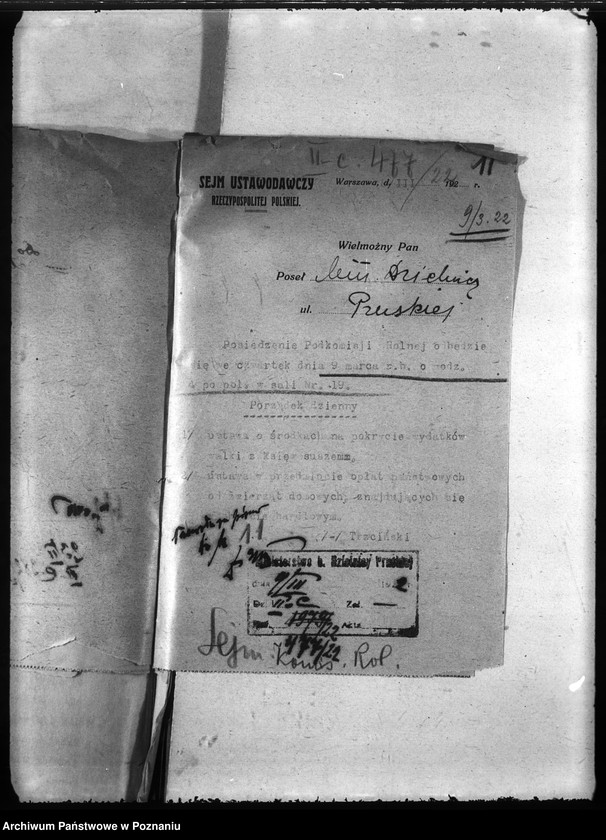 II-c. 477/22
11
SEJM USTAWODAWCZY
RZECZYPOSPOLITEJ POLSKIEJ.
Warszawa, d. III 192 r.
9/3.22
Wielmożny Pan
Poseł Min. Dzielnicy
ul. Pruskiej
Posiedzenie Podkomisji Rolnej odbędzie
się we czwartek dnia 9 marca r.b. o godz.
4 po poł. w sali Nr. 19.
Porządek dzienny
1/ ustawa o środkach na pokrycie wydatków
walki z księgosuszem,
2/ ustawa w przedmiocie opłat państwowych
od zwierząt domowych, znajdujących się
handlowym.
/-/ Trzciński
11
Ministerstwo b. Dzielnicy Pruskiej
dnia 9/III 192
Dz. VII c Zał. —
Akta
477/22
Sejm. Komis. Rol.
Archiwum Państwowe w Poznaniu